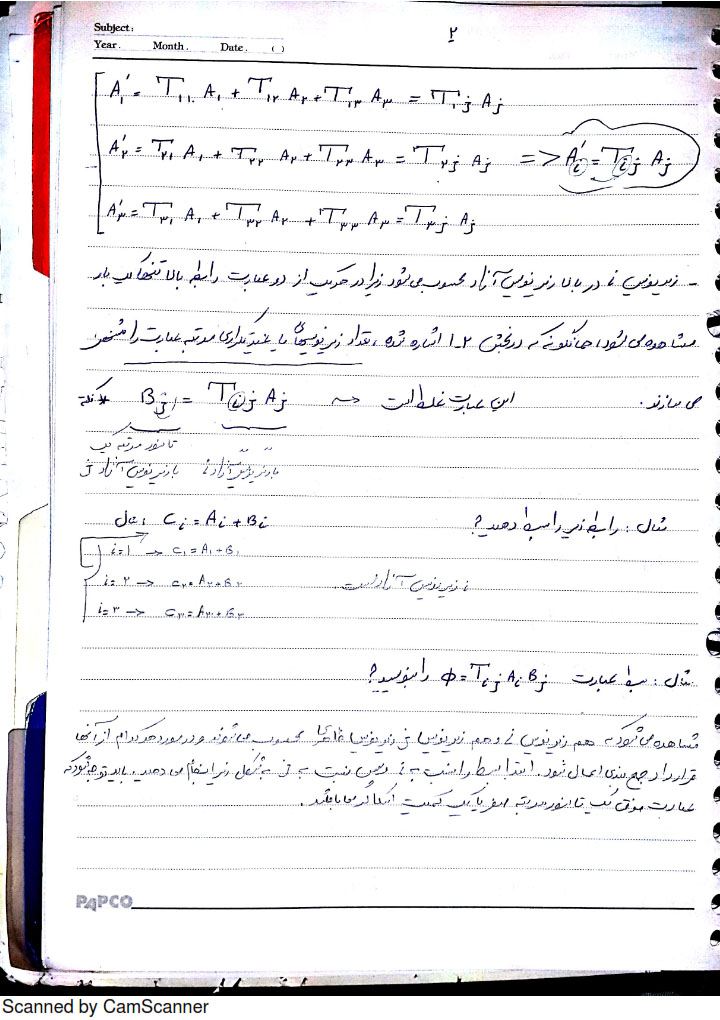 Subject:
Year. Month. Date. ( )
۲
A'۱ = T۱۱ A۱ + T۱۲ A۲ + T۱۳ A۳ = T۱j Aj
A'۲ = T۲۱ A۱ + T۲۲ A۲ + T۲۳ A۳ = T۲j Aj => A'i = Tij Aj
A'۳ = T۳۱ A۱ + T۳۲ A۲ + T۳۳ A۳ = T۳j Aj
- زیرنویس i در بالا زیرنویس آزاد محسوب می‌شود زیرا در هر یک از دو عبارت رابطه بالا تنها یک بار
مشاهده می‌شود، همانگونه که در بخش ۲-۱ اشاره شده، تعداد زیرنویسهای مرتبه عبارت را مشخص
می سازند.
نکته Bj = Tij Aj این عبارت غلط است
تانسور مرتبه یک
با زیرنویس آزاد i با زیرنویس آزاد j
مثال: رابطه زیر را بسط دهید؟ حل: Ci = Ai + Bi
i=۱ -> C۱ = A۱ + B۱
i=۲ -> C۲ = A۲ + B۲ i زیرنویس آزاد است.
i=۳ -> C۳ = A۳ + B۳
مثال: بسط عبارت Φ = Tij Ai Bj را بنویسید؟
مشاهده می‌شود که هم زیرنویس i و هم زیرنویس j زیرنویس ظاهری محسوب می‌شوند و در مورد هر کدام از آنها
قرارداد جمع بندی اعمال شود. ابتدا بسط را نسبت به i و سپس نسبت به j به شکل زیر انجام می دهید، باید توجه شود که
عبارت فوق یک تانسور مرتبه صفر یا یک کمیت اسکالر می‌باشد.
PAPCO
Scanned by CamScanner